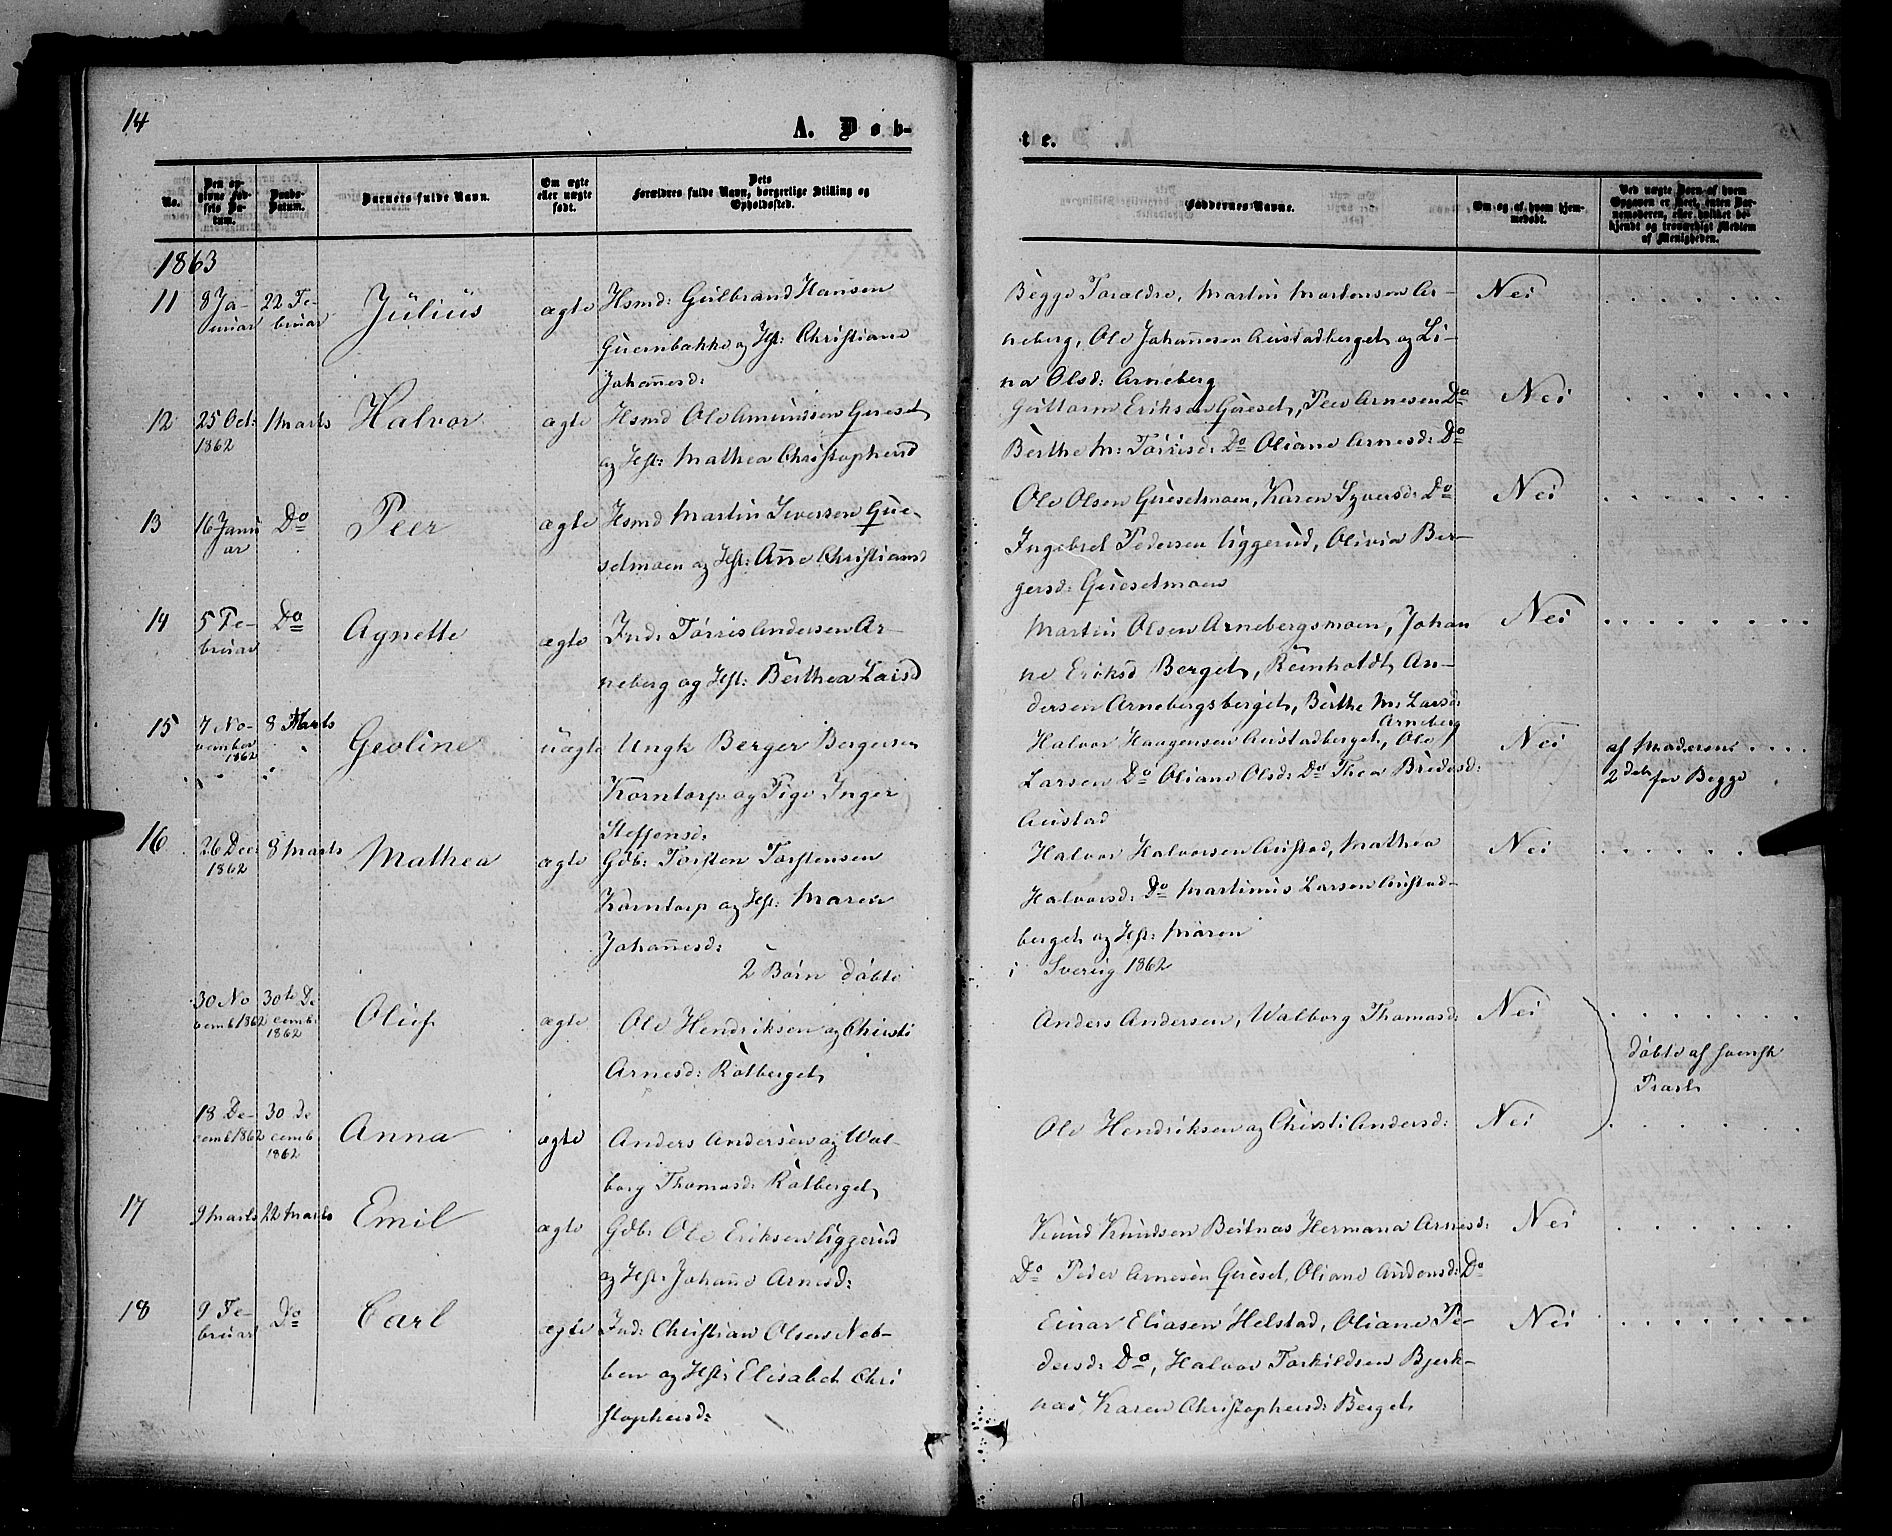 14
A. Døb-
te.
No.
Den op-
givne Fød-
sels Da-
tum.
Daabs-
Datum.
Barnets fulde Navn.
Om ægte
eller uægte
født.
Dets
Forældres fulde Navn, borgerlige Stilling og
Opholdssted.
Faddernes Navne.
Om og af hvem hjem-
medøbt.
Ved uægte Børn af hvem
Opgaven er skeet, enten Bar-
nemoderen, eller hvilket be-
kjendt og troværdigt Medlem
af Menigheden.
1863
11
8 Ja-
nuar
22 Fe-
bruar
Julius
ægte
Hsmd: Gulbrand Hansen
Guernbakke og Hst: Christiane
Johannesd:
Begge Forældre, Martin Mortensen Ar-
neberg, Ole Johannesen Austadberget og Li-
na Olsd: Arneberg
Nei
12
25 Oct:
1862
1 Marts
Halvor
ægte
Hsmd Ole Amundsen Gueset
og Hst: Mathea Christophersd
Guttorm Eriksen Gueset, Peer Arnesen Do
Berthe M: Torrisd: Do Oliane Arnesd: Do
Nei
13
16 Janu
ar
Do
Peer
ægte
Hsmd Martin Iversen Gue-
selmoen og Hst: Anne Christiansd
Ole Olsen Gueselmoen, Karen Syversd: Do
Ingebret Pedersen Liggerud, Olivia Ber-
gersd: Gueselmoen
Nei
14
5 Fe-
bruar
Do
Agnette
ægte
Ind: Torris Andersen Ar-
neberg og Hst: Berthea Larsd
Martin Olsen Arnebergsmoen, Johan
ne Eriksd Berget, Reinholdt An-
dersen Arnebergsberget, Berthe M: Larsd:
Arneberg
Nei
15
7 No-
vember
1862
8 Marts
Geoline
uægte
Ungk Berger Bergersen
Korntorp og Pige Inger
Steffensd:
Halvor Haagensen Austadberget, Ole
Larsen Do Oliane Olsd: Do Thea Bredesd:
Austad
Nei
af Moderen
2 det for Begge
16
26 Dec:
1862
8 Marts
Mathea
ægte
Gdb: Torsten Torstensen
Korntorp og Hst: Maren
Johannesd:
Halvor Halvorsen Austad, Mathea
Halvorsd: Do Martinus Larsen Austad-
berget og Hst: Maren
Nei
2 Børn døbte
i Sverig 1862
30 No
vemb 1862
30te De
cemb:
1862
Oluf
ægte
Ole Hendriksen og Christi
Arnesd: Rotberget
Anders Andersen, Walborg Thomasd:
Nei
døbte af svensk
Præst
18 De-
cemb 1862
30 De
cemb
1862
Anna
ægte
Anders Andersen og Wal-
borg Thomasd: Rotberget
Ole Hendriksen og Christi Andersd:
Nei
17
9 Marts
22 Marts
Emil
ægte
Gdb: Ole Eriksen Liggerud
og Hst: Johane Arnesd:
Knud Knudsen Beitnæs Hermana Arnesd:
Do Peder Arnesen Gueset, Oliane Audensd: Do
Nei
18
9 Fe-
bruar
Do
Carl
ægte
Ind: Christian Olsen Neb-
ben og Hst: Elisabet Chri
stophersd:
Einar Eliasen Helstad, Oliane Pe-
dersd: Do, Halvor Torkildsen Bjerk-
næs, Karen Christophersd: Berget
Nei